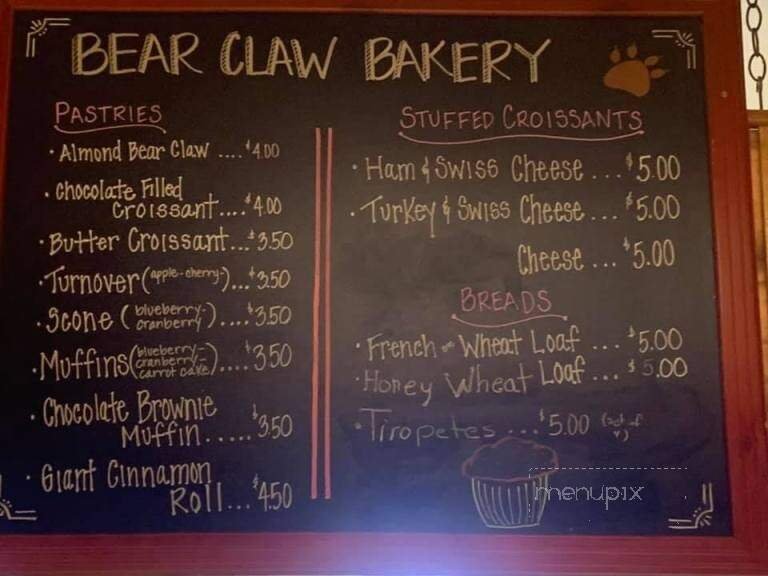 BEAR CLAW BAKERY
PASTRIES
• Almond Bear Claw .... $4.00
• Chocolate Filled
Croissant.... $4.00
• Butter Croissant... $3.50
• Turnover (apple-cherry-)... $3.50
• Scone (blueberry-
cranberry).... $3.50
• Muffins (blueberry-
cranberry-
carrot cake).... $3.50
• Chocolate Brownie
Muffin..... $3.50
• Giant Cinnamon
Roll... $4.50
STUFFED CROISSANTS
• Ham & Swiss Cheese ... $5.00
• Turkey & Swiss Cheese ... $5.00
Cheese ... $5.00
BREADS
• French or Wheat Loaf ... $5.00
• Honey Wheat Loaf ... $5.00
• Tiropetes ... $5.00 (set of
menupix